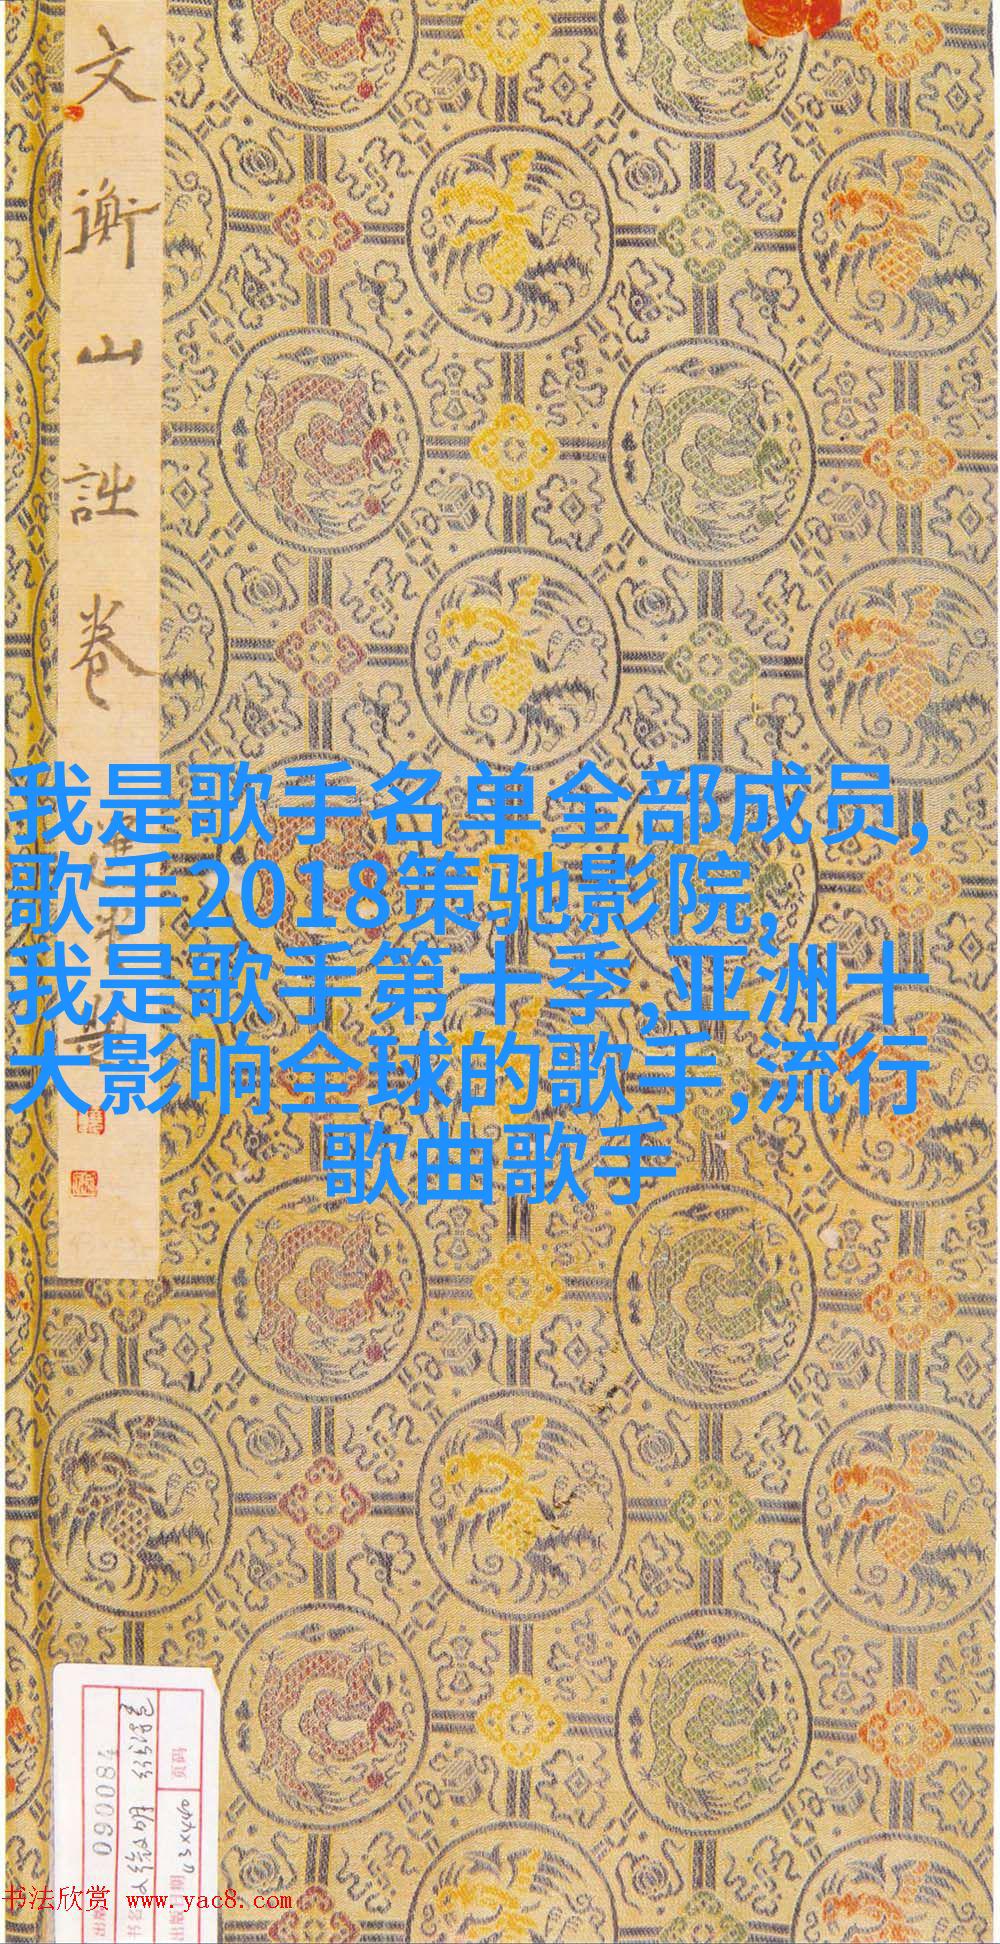 文衡山詩卷
我是歌手名单全部成员,
歌手2018策驰影院,
我是歌手第十季,亚洲十
大影响全球的歌手,流行
歌曲歌手
090084
页码
43x440
书法欣赏 www.yac8.com